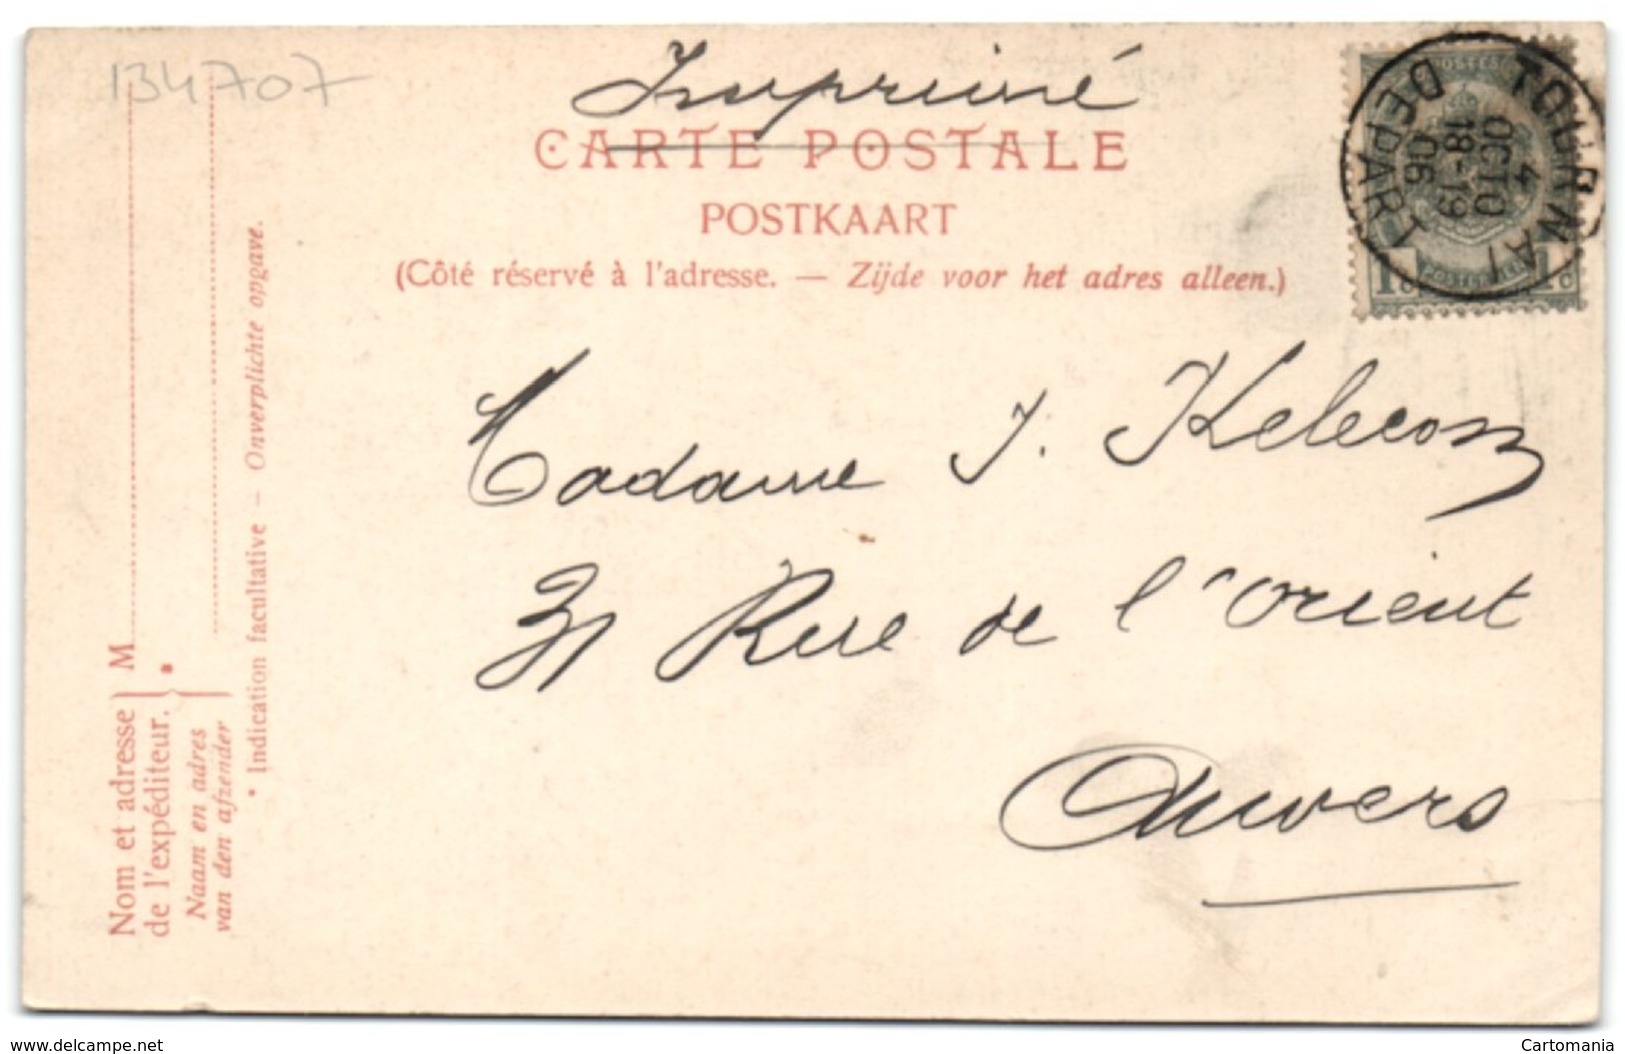 134707
Imprimé
CARTE POSTALE
POSTKAART
(Côté réservé à l'adresse. — Zijde voor het adres alleen.)
POSTES
1c 1c
TOURNAI
4
OCTO
18-19
06
DEPART
Madame J. Kelecom
31 Rue de l'Orient
Anvers
Nom et adresse
de l'expéditeur.
Naam en adres
van den afzender
M
*
* Indication facultative – Onverplichte opgave.
www.delcampe.net
Cartomania